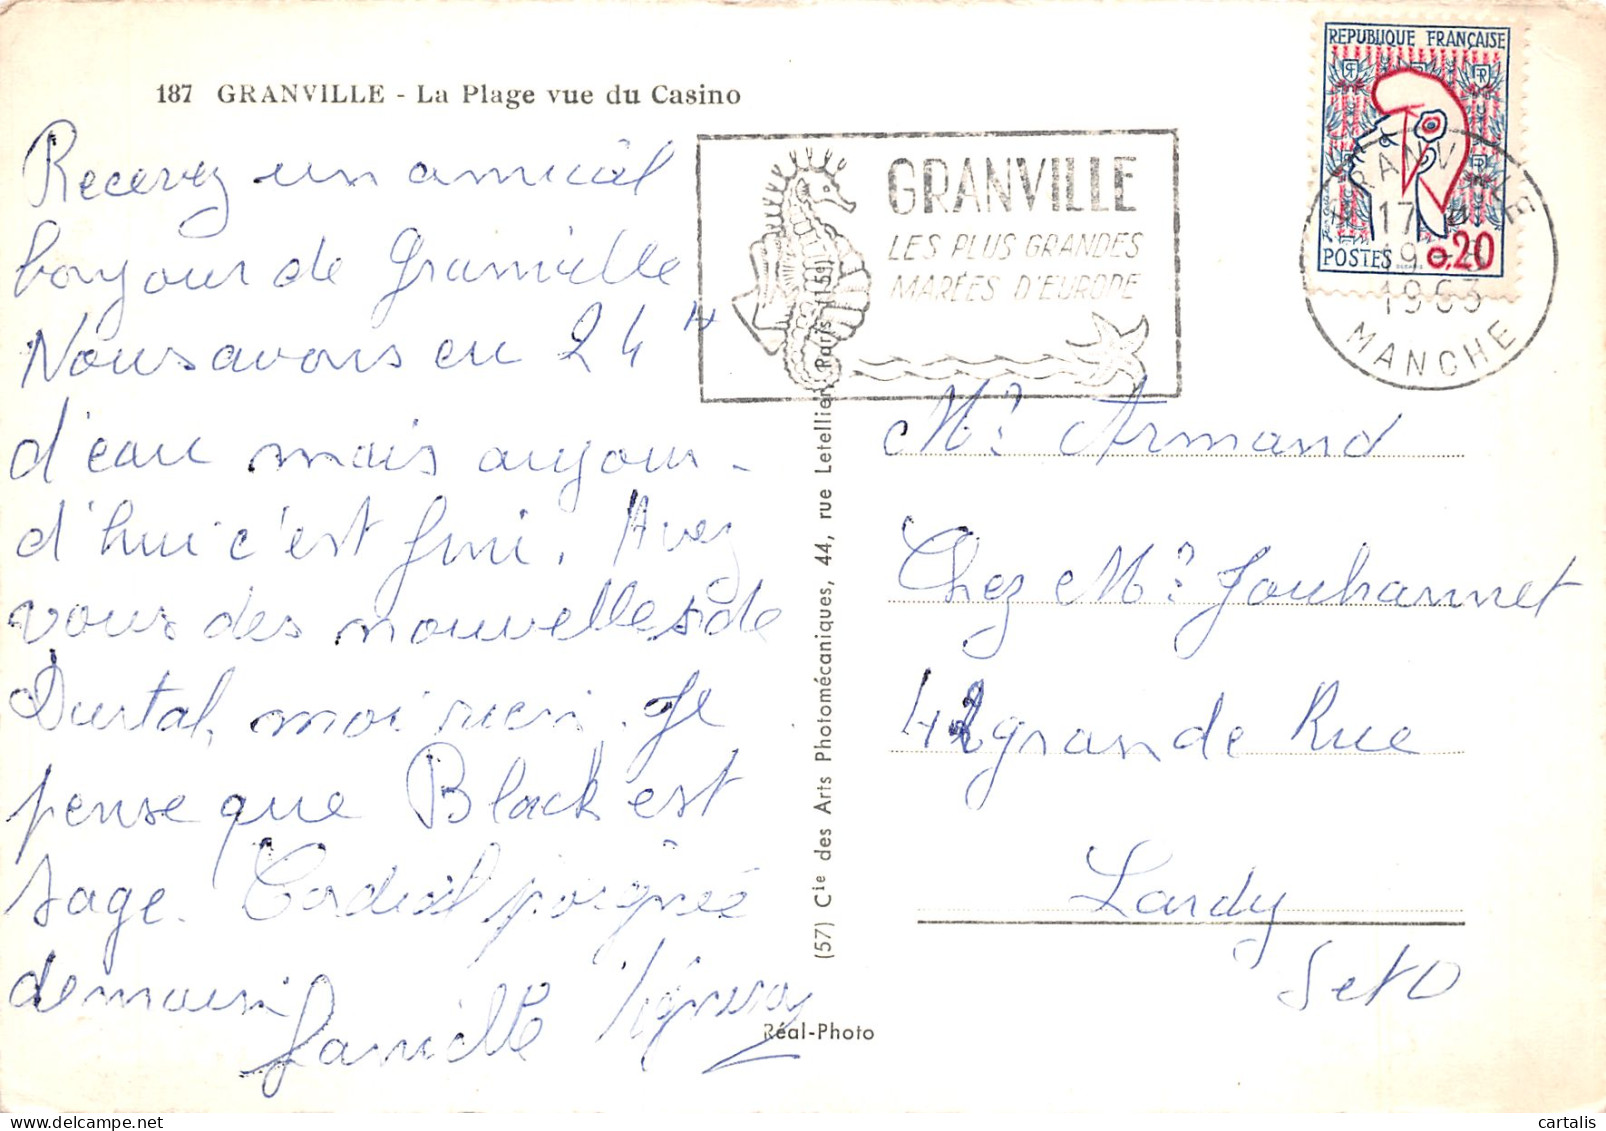 187 GRANVILLE - La Plage vue du Casino
Recevez un amical
bonjour de Granville
Nous avons eu 24 H
d'eau mais aujour-
d'hui c'est fini. Avez
vous des nouvelles de
Durtal, moi rien. Je
pense que Black est
sage. Cordial poignée
de main
famille
Réal-Photo
(57) Cie des Arts Photomécaniques, 44, rue Letellier, Paris (15e)
GRANVILLE
LES PLUS GRANDES
MARÉES D'EUROPE
REPUBLIQUE FRANÇAISE
POSTES 0,20
GRANVILLE
17 H
19-8
1963
MANCHE
Mr Armand
Chez Mr Jouhannet
42 grande Rue
Lardy
S et O
cartalis